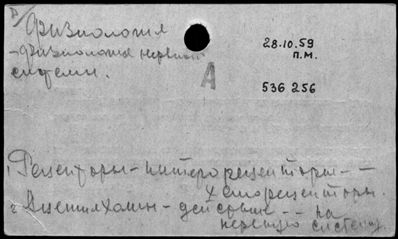 Физиология
-физиология нервной
системы.
28.10.59
п.м.
А
536 256
1 Рецепторы - интерорецепторы - -
хеморецепторы.
2 Ацетилхолин - действие - - на
нервную систему.